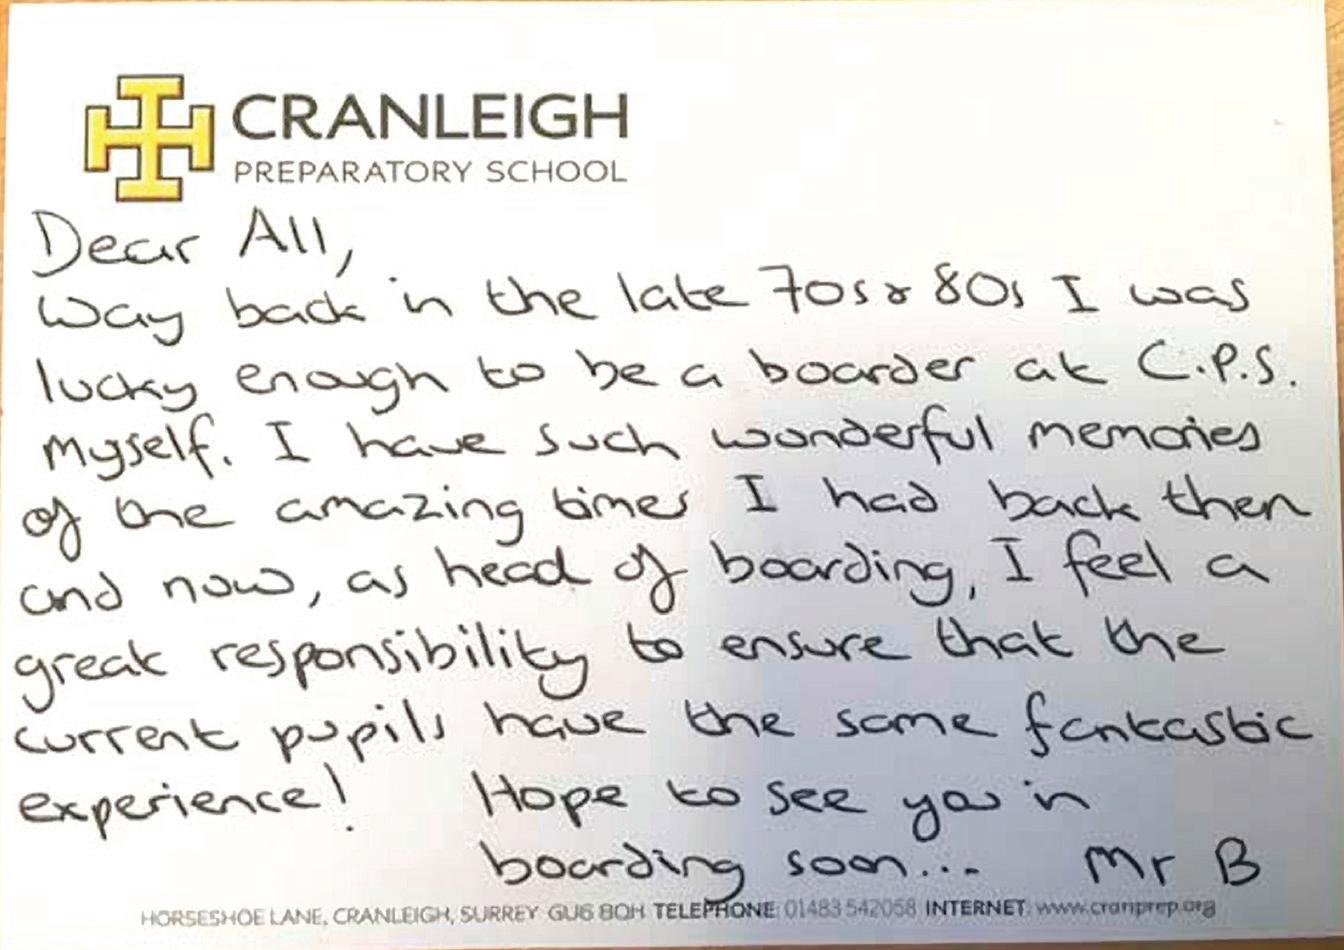 CRANLEIGH
PREPARATORY SCHOOL
Dear All,
Way back in the late 70s & 80s I was
lucky enough to be a boarder at C.P.S.
myself. I have such wonderful memories
of the amazing times I had back then
and now, as head of boarding, I feel a
great responsibility to ensure that the
current pupils have the same fantastic
experience! Hope to see you in
boarding soon... Mr B
HORSESHOE LANE, CRANLEIGH, SURREY GU6 8QH TELEPHONE: 01483 542058 INTERNET: www.cranprep.org